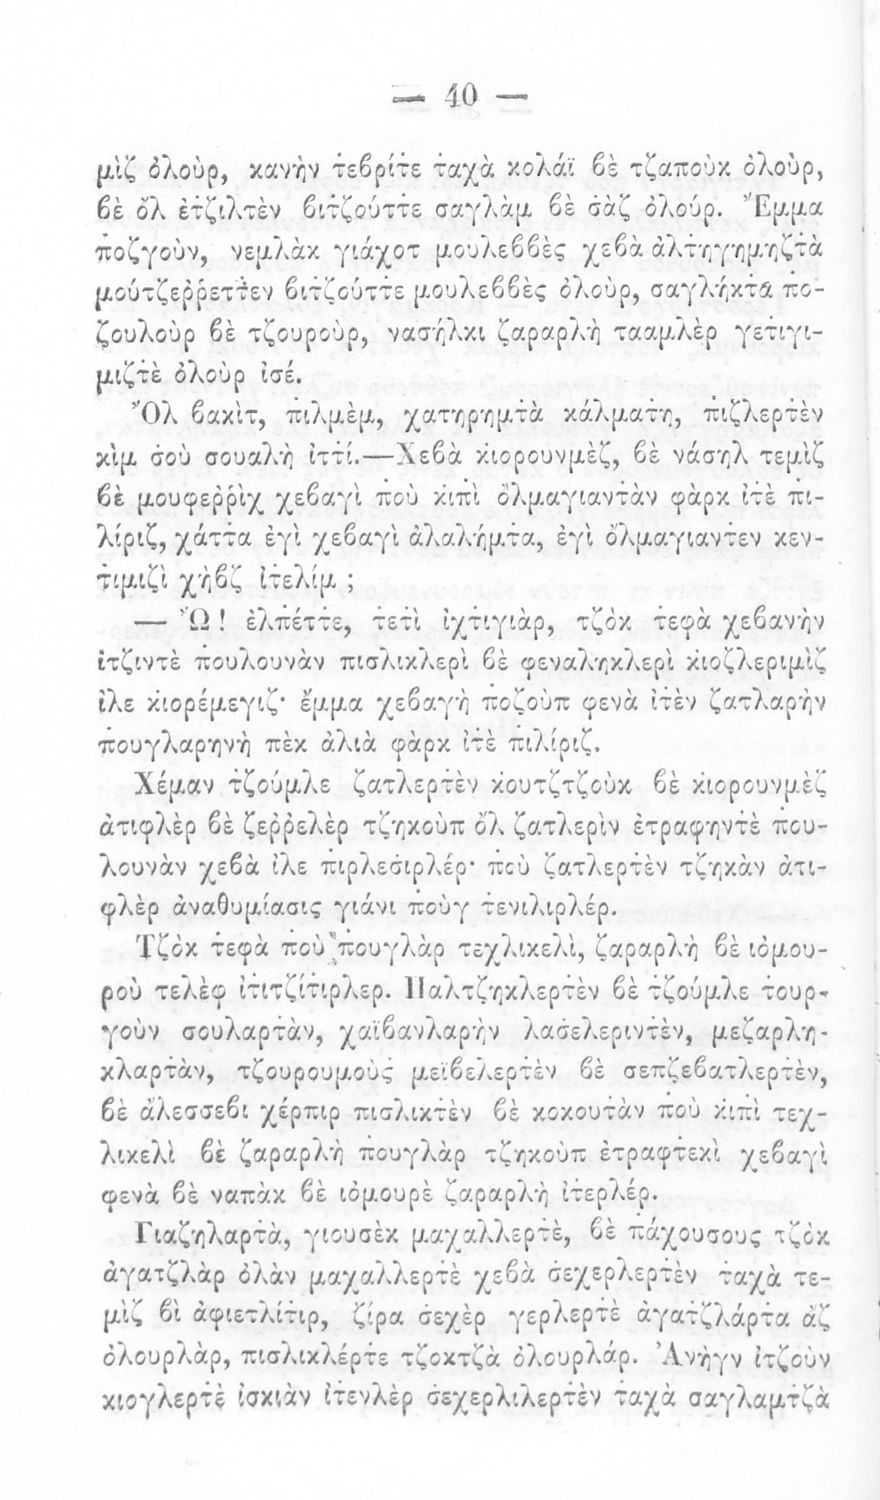 — 40 —
μὶζ ὀλοὺρ, κανὴν τ̇εβρίτ̇ε τ̇αχὰ κολάϊ βὲ τζαποὺκ ὀλοὺρ,
βὲ ὂλ ἐτζιλτὲν βιτζούττε σαγλὰμ βὲ σ̇ὰζ ὀλούρ. Ἔμμα
π̇οζγοὺν, νεμλὰκ γιάχοτ μουλεββὲς χεβὰ ἀλτηγημηζτ̇ὰ
μούτζεῤῥεττ̇εν βιτζούττ̇ε μουλεββὲς ὀλοὺρ, σαγλήκτα π̇ο-
ζουλοὺρ βὲ τζουροὺρ, νασήλκι ζαραρλὴ τααμλὲρ γετιγι-
μιζτ̇ὲ ὀλοὺρ ἰσέ.
Ὂλ βακὶτ, πιλμὲμ, χατηρημτ̇ὰ κάλματη, π̇ιζλερτ̇ὲν
κὶμ σ̇οὺ σουαλὴ ἰττί.—Χεβὰ κ̇ιορουνμὲζ, βὲ νάσηλ τεμὶζ
βὲ μουφεῤῥὶχ χεβαγὶ π̇οὺ κιπὶ ὂλμαγιαντ̇ὰν φὰρκ ἰτ̇ὲ πι-
λίριζ, χάττα ἐγὶ χεβαγὶ ἀλαλήμτ̇α, ἐγὶ ὂλμαγιαντ̇εν κεν-
τ̇ιμιζὶ χὴβζ ἰτ̇ελίμ ;
— Ὢ! ἐλπέττε, τ̇ετὶ ἰχτιγιὰρ, τζὸκ τ̇εφὰ χεβανὴν
ἰτζιντὲ π̇ουλουνὰν πισλικλερὶ βὲ φεναληκλερὶ κ̇ιοζλεριμὶζ
ἰλε κ̇ιορέμεγιζ· ἔμμα χεβαγὴ π̇οζοὺπ φενὰ ἰτ̇ὲν ζατλαρὴν
π̇ουγλαρηνὴ πὲκ ἀλιὰ φὰρκ ἰτ̇ὲ π̇ιλίριζ.
Χέμαν τζούμλε ζατλερτ̇ὲν κουτζτζοὺκ βὲ κ̇ιορουνμὲζ
ἀτιφλὲρ βὲ ζεῤῥελὲρ τζηκοὺπ ὂλ ζατλερὶν ἐτραφηντ̇ὲ π̇ου-
λουνὰν χεβὰ ἰλε π̇ιρλεσ̇ιρλέρ· π̇οὺ ζατλερτ̇ὲν τζηκὰν ἀτι-
φλὲρ ἀναθυμίασις γιάνι π̇οὺγ τ̇ενιλιρλέρ.
Τζὸκ τ̇εφὰ π̇οὺ π̇ουγλὰρ τεχλικελὶ, ζαραρλὴ βὲ ἰὀμου-
ροὺ τελὲφ ἰτ̇ιτζίτ̇ιρλερ. Παλτζηκλερτ̇ὲν βὲ τζούμλε τουρ-
γοὺν σουλαρτ̇ὰν, χαϊβανλαρὴν λασ̇ελεριντ̇ὲν, μεζαρλη-
κλαρτ̇ὰν, τζουρουμοὺς̇ μεϊβελερτ̇ὲν βὲ σεπζεβατλερτ̇ὲν,
βὲ ἄλεσσεβι χέρπιρ πισλικτ̇ὲν βὲ κοκουτ̇ὰν π̇οὺ κ̇ιπὶ τεχ-
λικελὶ βὲ ζαραρλὴ π̇ουγλὰρ τζηκοὺπ ἐτραφτ̇εκὶ χεβαγὶ
φενὰ βὲ ναπὰκ βὲ ἰὀμουρὲ ζαραρλὴ ἰτ̇ερλέρ.
Γιαζηλαρτ̇ὰ, γιουσὲκ μαχαλλερτ̇ὲ, βὲ π̇άχουσους τζὸκ
ἀγατζλὰρ ὀλὰν μαχαλλερτ̇ὲ χεβὰ σ̇εχερλερτ̇ὲν τ̇αχὰ τε-
μὶζ βὶ ἀφιετλίτ̇ιρ, ζίρα σ̇εχὲρ γερλερτ̇ὲ ἀγατζλάρτ̇α ἀζ
ὀλουρλὰρ, πισλικλέρτ̇ε τζοκτζὰ ὀλουρλάρ. Ἀνὴγν ἰτζοὺν
κιογλερτ̇ὲ ἰσκιὰν ἰτ̇ενλὲρ σ̇εχερλιλερτ̇ὲν τ̇αχὰ σαγλαμτζὰ